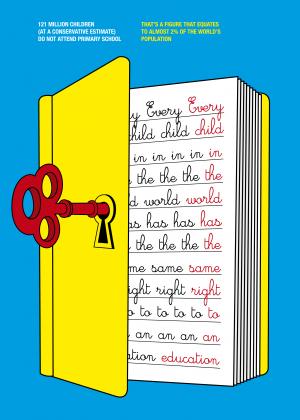 121 MILLION CHILDREN
(AT A CONSERVATIVE ESTIMATE)
DO NOT ATTEND PRIMARY SCHOOL
THAT'S A FIGURE THAT EQUATES
TO ALMOST 2% OF THE WORLD'S
POPULATION
y Every Every
child child child
in in in in in
s the the the the
d world world
as has has has
the the the the
me same same
ight right right
o to to to to to
an an an an an
ation education